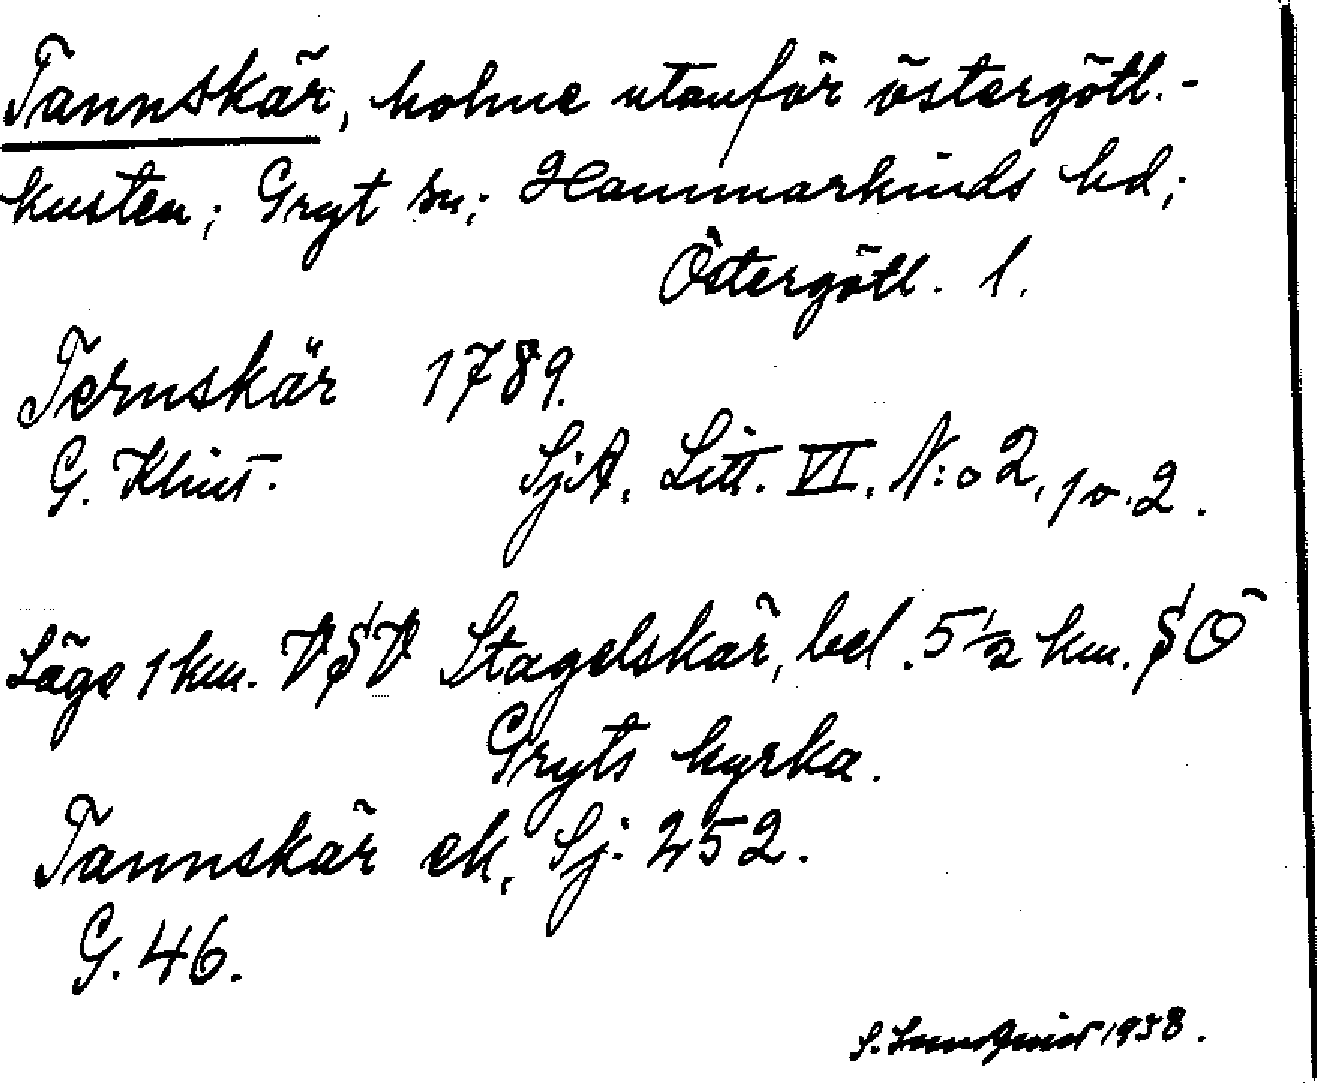 Tannskär, holme utanför östergötl.-
kusten; Gryt sn; Hammarkinds hd;
Östergötl. l.
Ternskär 1789.
G. Klint. SjA. Litt. VI. N:o 2, p. 2.
Läge 1 km. VSV Stagelskär, bel. 5 1/2 km. SÖ
Gryts kyrka.
Tannskär ek, Sj. 252.
G. 46.
S. Lundqvist 1938.